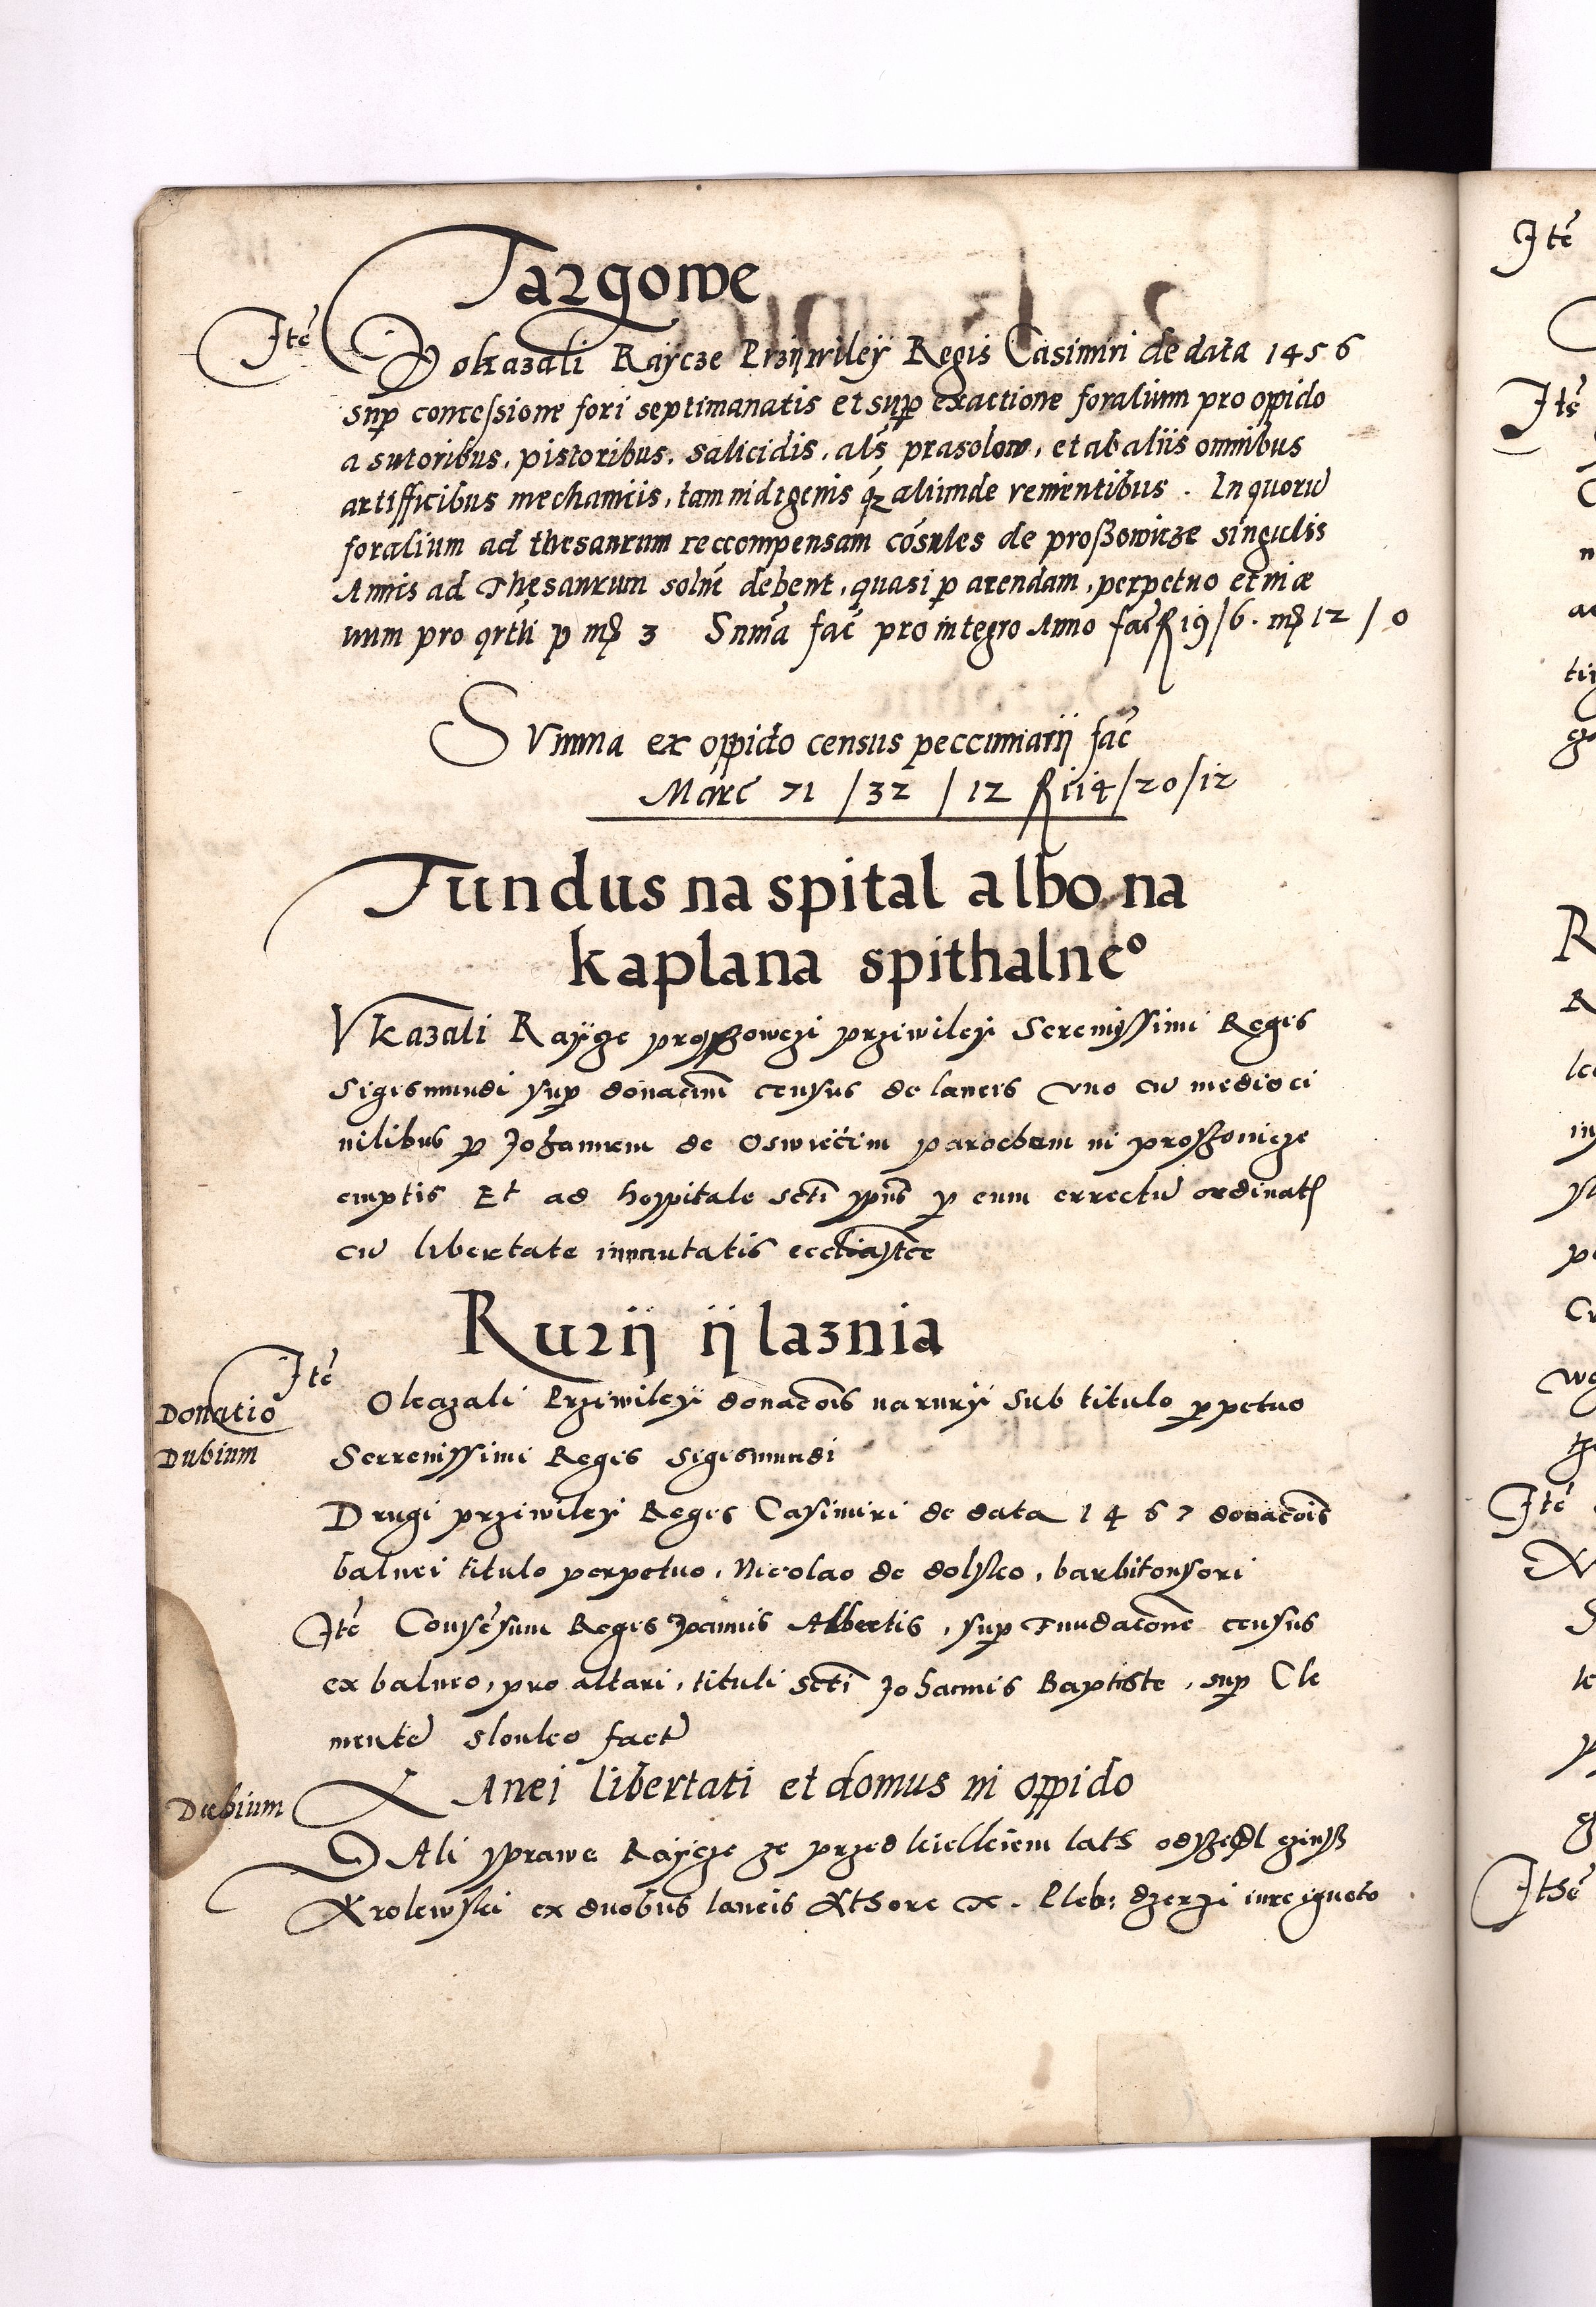 Targowe
Ité Pokazali Raÿcze Przÿwileÿ Regis Casimiri de data 1456
sup concessione fori septimanatis et sup exactione foralium pro oppido
a sutoribus, pistoribus, salicidis, als prasolow, et ab aliis omnibus
artifficibus mechanicis, tam indigenis qz aliunde venientibus. In quorū
foralium ad thesaurum reccompensam cósules de proßowicze singulis
Annis ad Thesaurum solué debent, quasi p arendam, perpetuo et in æ
uum pro qrtli p mß 3 Suma fac pro integro Anno fac 19/6. mß 12/0
SVmma ex oppido census peccuniarÿ fac
Marc 71/32/12 114/20/12
Fundus na spital albo na
kaplana spithalneº
Vkazali Rayçze prosszowczi prziwileÿ Serenissimi Regis
Sigismundi sup donacim census de laneis vno cū medio ci
uilibus p Johannem de Oswiecim parochum in proszouicze
emptis Et ad hospitale scti spūs p eum errectū ordinat
cū libertate inmutatis ecctiastce
Rurÿ ÿ laznia
Ité Okazali Prziwileÿ donacois na rurÿ sub titulo ppetuo
Donatio
Dubium
Serrenissimi Regis Sigismundi
Drugi prziwileÿ Regis Casimiri de data 1467 donacois
balnei titulo perpetuo, Nicolao de dolsko, barbitonsori
Ité Consésum Regis Joannis Albertis, sup Fundacone census
ex balneo, pro altari, tituli scti Johannis Baptiste, sup Cle
mentē slonko factū
Dubium
LAnei libertati et domus in oppido
DAli sprawe Raÿcze ze przed kielkiem lath odszedl czinsz
Krolewski ex duobus laneis kthore x. Pleb: dzerzi iure ignoto